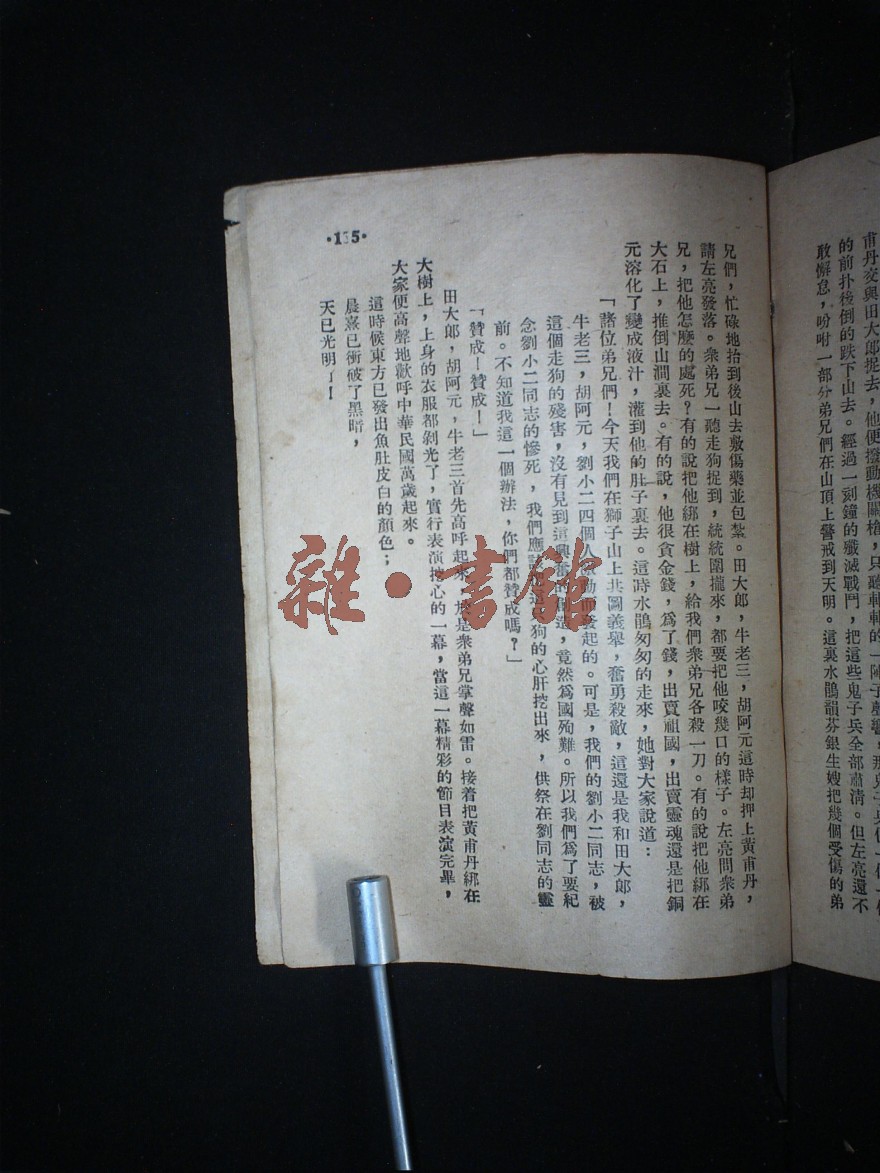 甫丹交與田大郞捉去，他便撥動機關槍，只聽
的前扑後倒的跌下山去。經過一刻鐘的殲滅戰鬥，把這些鬼子兵全部肅淸。但左亮還不
敢懈怠，吩咐一部分弟兄們在山頂上警戒到天明。這裏水鵑韻芬銀生嫂把幾個受傷的弟
兄們，忙碌地抬到後山去敷傷藥並包紮。田大郞，牛老三，胡阿元這時却押上黃甫丹，
請左亮發落。衆弟兄一聽走狗捉到，統統圍攏來，都要把他咬幾口的樣子。左亮問衆弟
兄，把他怎麽的處死？有的說把他綁在樹上，給我們衆弟兄各殺一刀。有的說把他綁在
大石上，推倒山澗裏去。有的說，他很貪金錢，爲了錢，出賣祖國，出賣靈魂還是把銅
元溶化了變成液汁，灌到他的肚子裏去。這時水鵑匆匆的走來，她對大家說道：
「諸位弟兄們！今天我們在獅子山上共圖義舉，奮勇殺敵，這還是我和田大郞，
牛老三，胡阿元，劉小二四個人發起的。可是，我們的劉小二同志，被
這個走狗的殘害，沒有見到這興奮的，竟然爲國殉難。所以我們爲了要紀
念劉小二同志的慘死，我們應該狗的心肝挖出來，供祭在劉同志的靈
前。不知道我這一個辦法，你們都贊成嗎？」
「贊成！贊成！」
田大郞，胡阿元，牛老三首先高呼起來，於是衆弟兄掌聲如雷。接着把黃甫丹綁在
大樹上，上身的衣服都剝光了，實行表演挖心的一幕，當這一幕精彩的節目表演完畢，
大家便高聲地歡呼中華民國萬歲起來。
這時候東方已發出魚肚皮白的顏色；
晨熹已衝破了黑暗，
天已光明了！
•135•
雜•書館